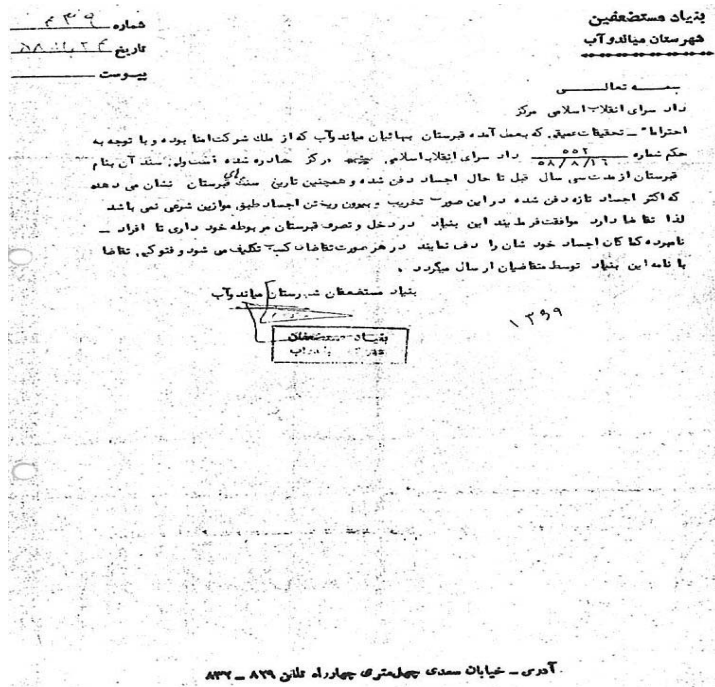 بنیاد مستضعفین
شهرستان میاندوآب
شماره ۴۴۹
تاریخ ۲۴ بان ۵۸
پیوست
بسمه تعالی
داد سرای انقلاب اسلامی مرکز
احتراما" ـ تحقیقات عمیق که بعمل آمده قبرستان بهائیان میاندوآب که از ملک شرکت امنا بوده و با توجه به
حکم شماره ۵۵۲ ۵۸/۸/۱۹ داد سرای انقلاب اسلامی مرکز صادره شده است ولی سند آن بنام
قبرستان از مدت سی سال قبل تا حال اجساد دفن شده و همچنین تاریخ سنگ های قبرستان نشان می دهد
که اکثر اجساد تازه دفن شده در این صورت تخریب و بیرون ریختن اجساد طبق موازین شرعی نمی باشد
لذا تقاضا دارد موافقت فرمایند این بنیاد در دخل و تصرف قبرستان مربوطه خود داری تا افراد ـ
نامبرده کما کان اجساد خود شان را دفن نمایند در هر صورت تقاضای کسب تکلیف می شود و فتوکپی تقاضا
با نامه این بنیاد توسط متقاضیان ارسال میگردد .
بنیاد مستضعفان شهرستان میاندوآب
بنیاد مستضعفان
۱۳۶۹
آدرس ـ خیابان سعدی چهلمتری چهارراه تلفن ۸۲۹ ـ ۸۳۲